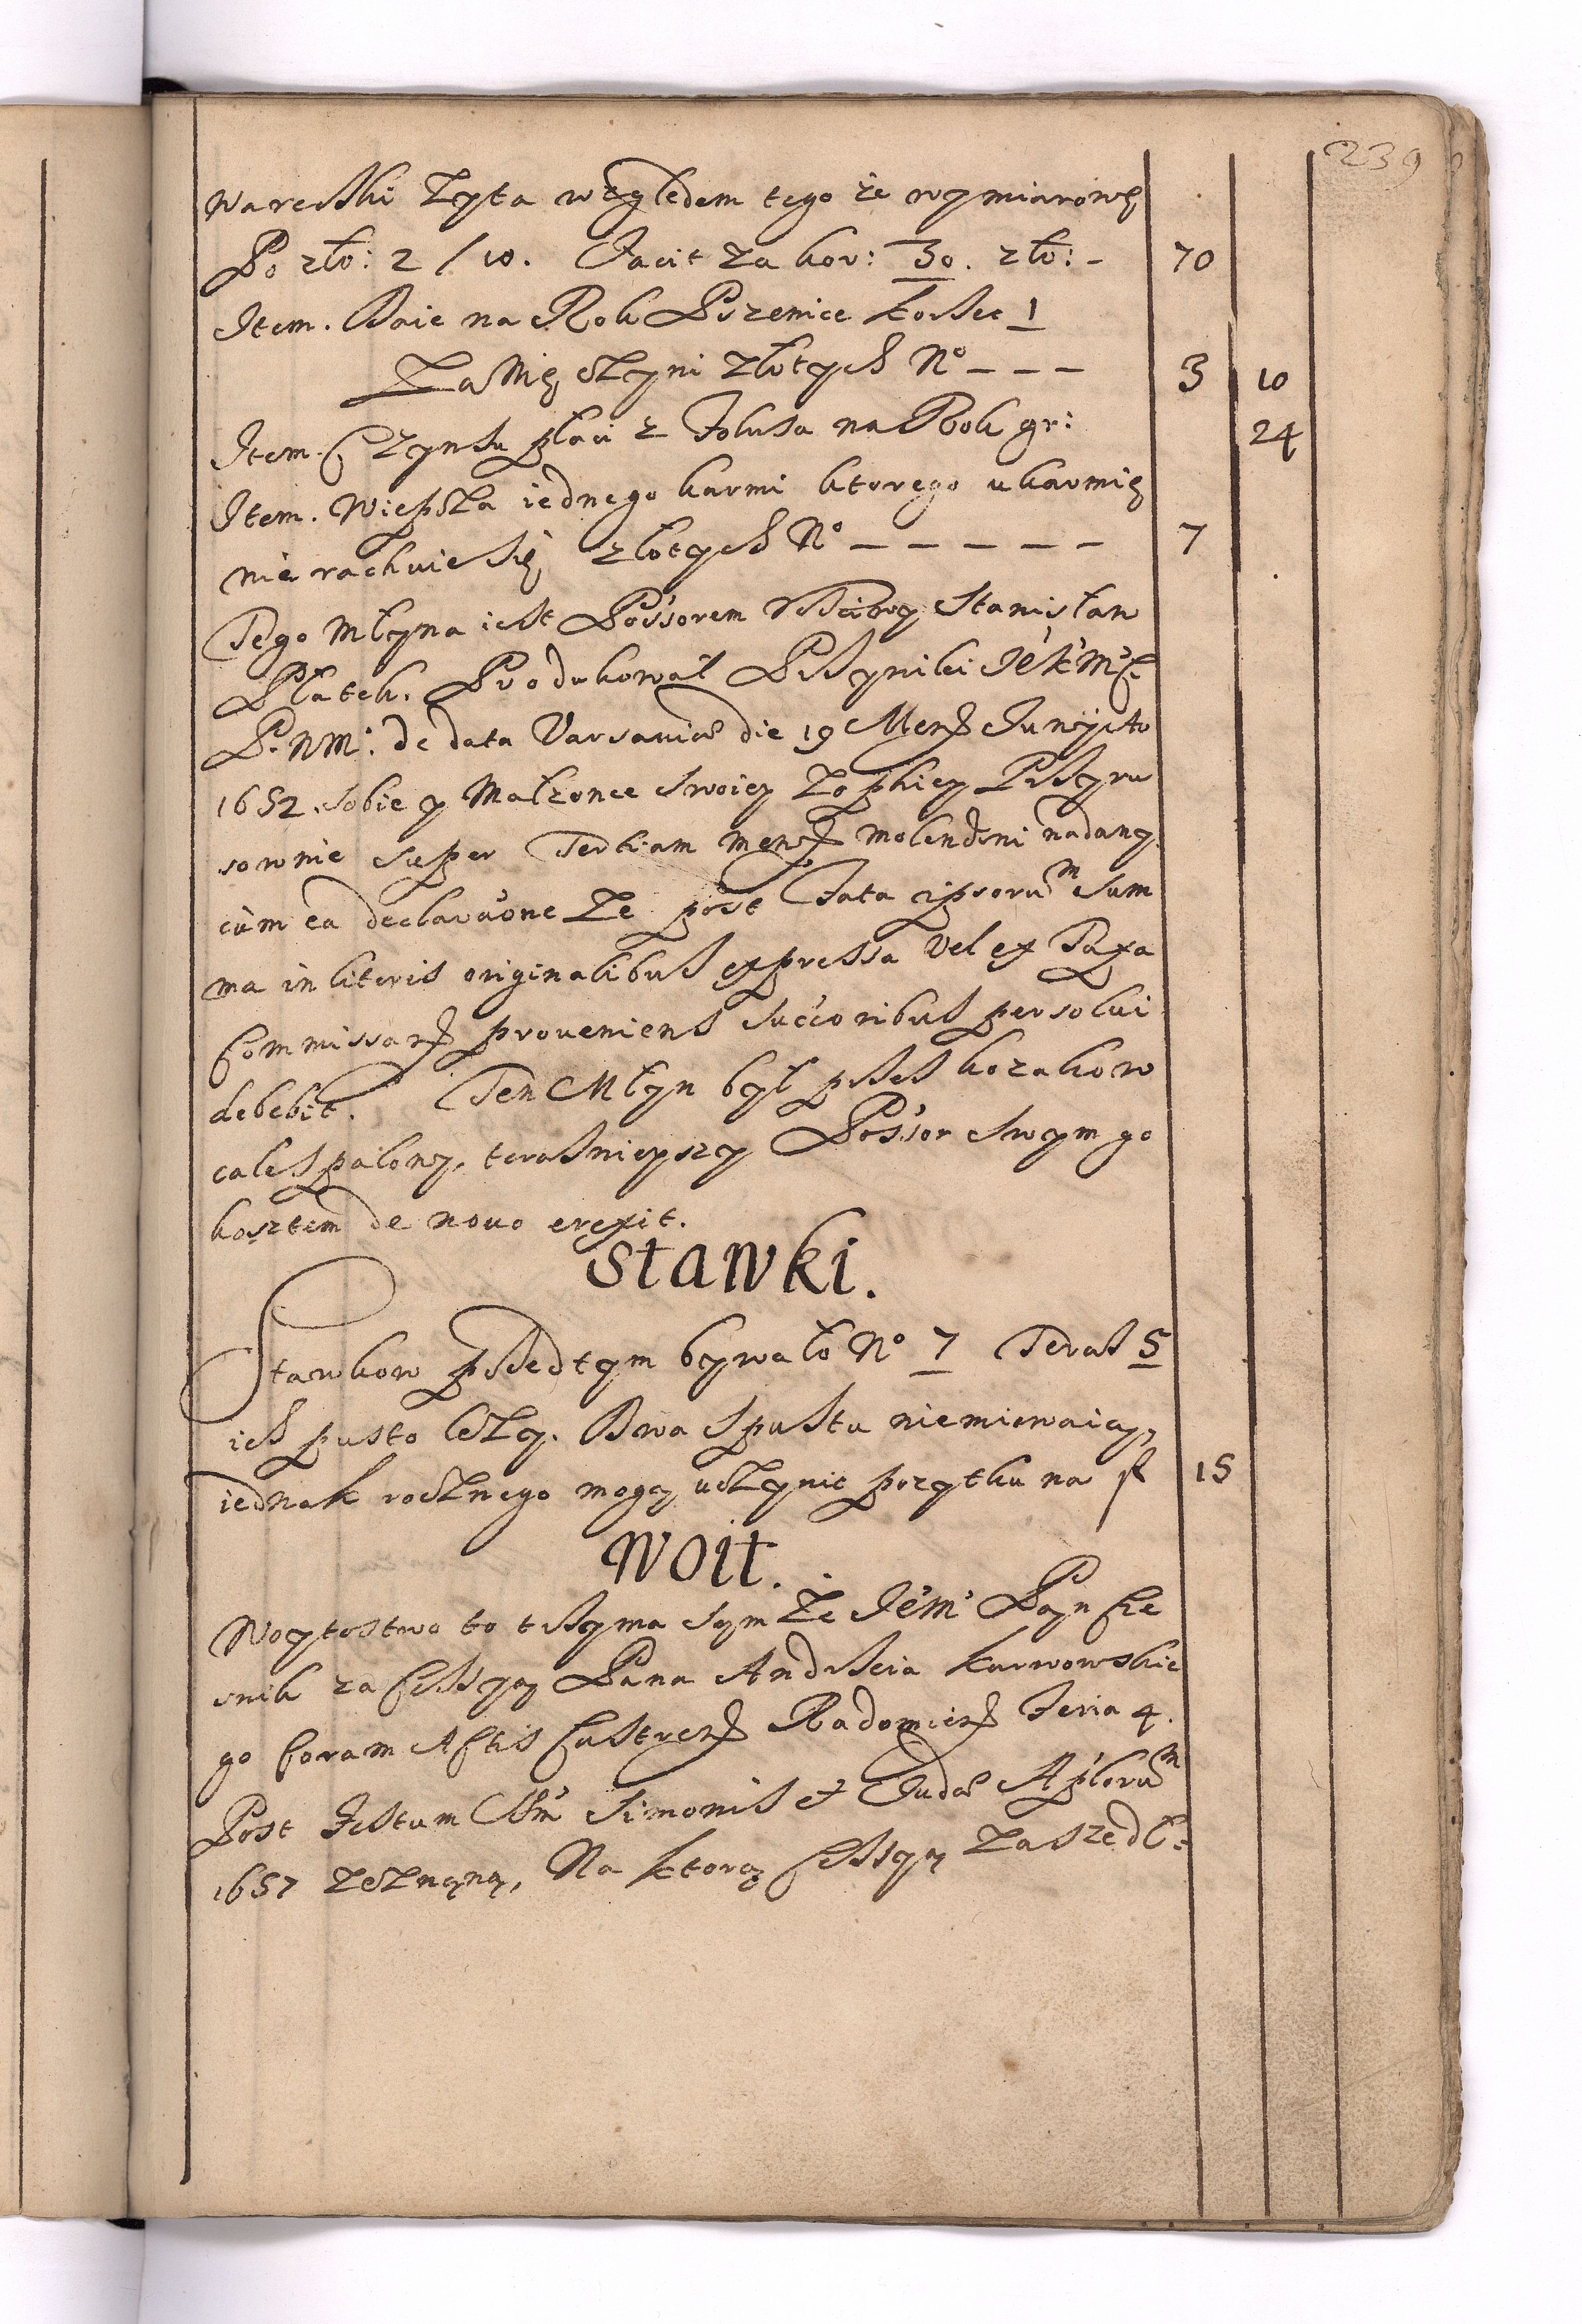 239
Wareckki Zyta względem tego że wymiarowę
Po zło: 2 / 10. Facit Za kor: 30. zło: - 70
Item. Daie na Rok Pszenice korzec 1
Za Nię czyni Złotych No - - - 3 10
Item. Czynszu płaci z Folusa na Rok gr: 24
Item. Wieprza iednego karmi ktorego ukarmię
nie rachuie się złotych No - - - - - 7
Tego Młyna iest Possorem Vczciwy Stanisław
Płatek. Produkował Przywilei JeKMsc
P. NM: de data Varsaviae die 19 Mens Junij
1652. sobie y Małzonce swoiey Zophiey
sownie super Tertiam mens molendini nadany
cum ea declaraone Ze post Fata ipsorum Sum
ma in literis originalibus expressa Vel ex Taxa
Commissar proueniens succoribus persolui
debebit. Ten Młyn był przez kozakow
cale spalony, terasnieyszy Possor swym go
kosztem de nouo erexit.
Stawki.
Stawkow przedtym bywało No 7 Teras 5
ich pusto lezą. Dwa spustu niemiewaią,
iednak rocznego mogą uczynic pozytku na fl 15
Woit.
Woytostwo to trzyma sym Ze JeM Pan Cze
snik za Cessyą Pana Andrzeia Karwowskie
go Coram Actis Castren Radomien Feria 4.
Post Festum SSm Simonis et Judae Aplorum
1657 zeznaną, Na ktorą Cessyą Zaszedł: